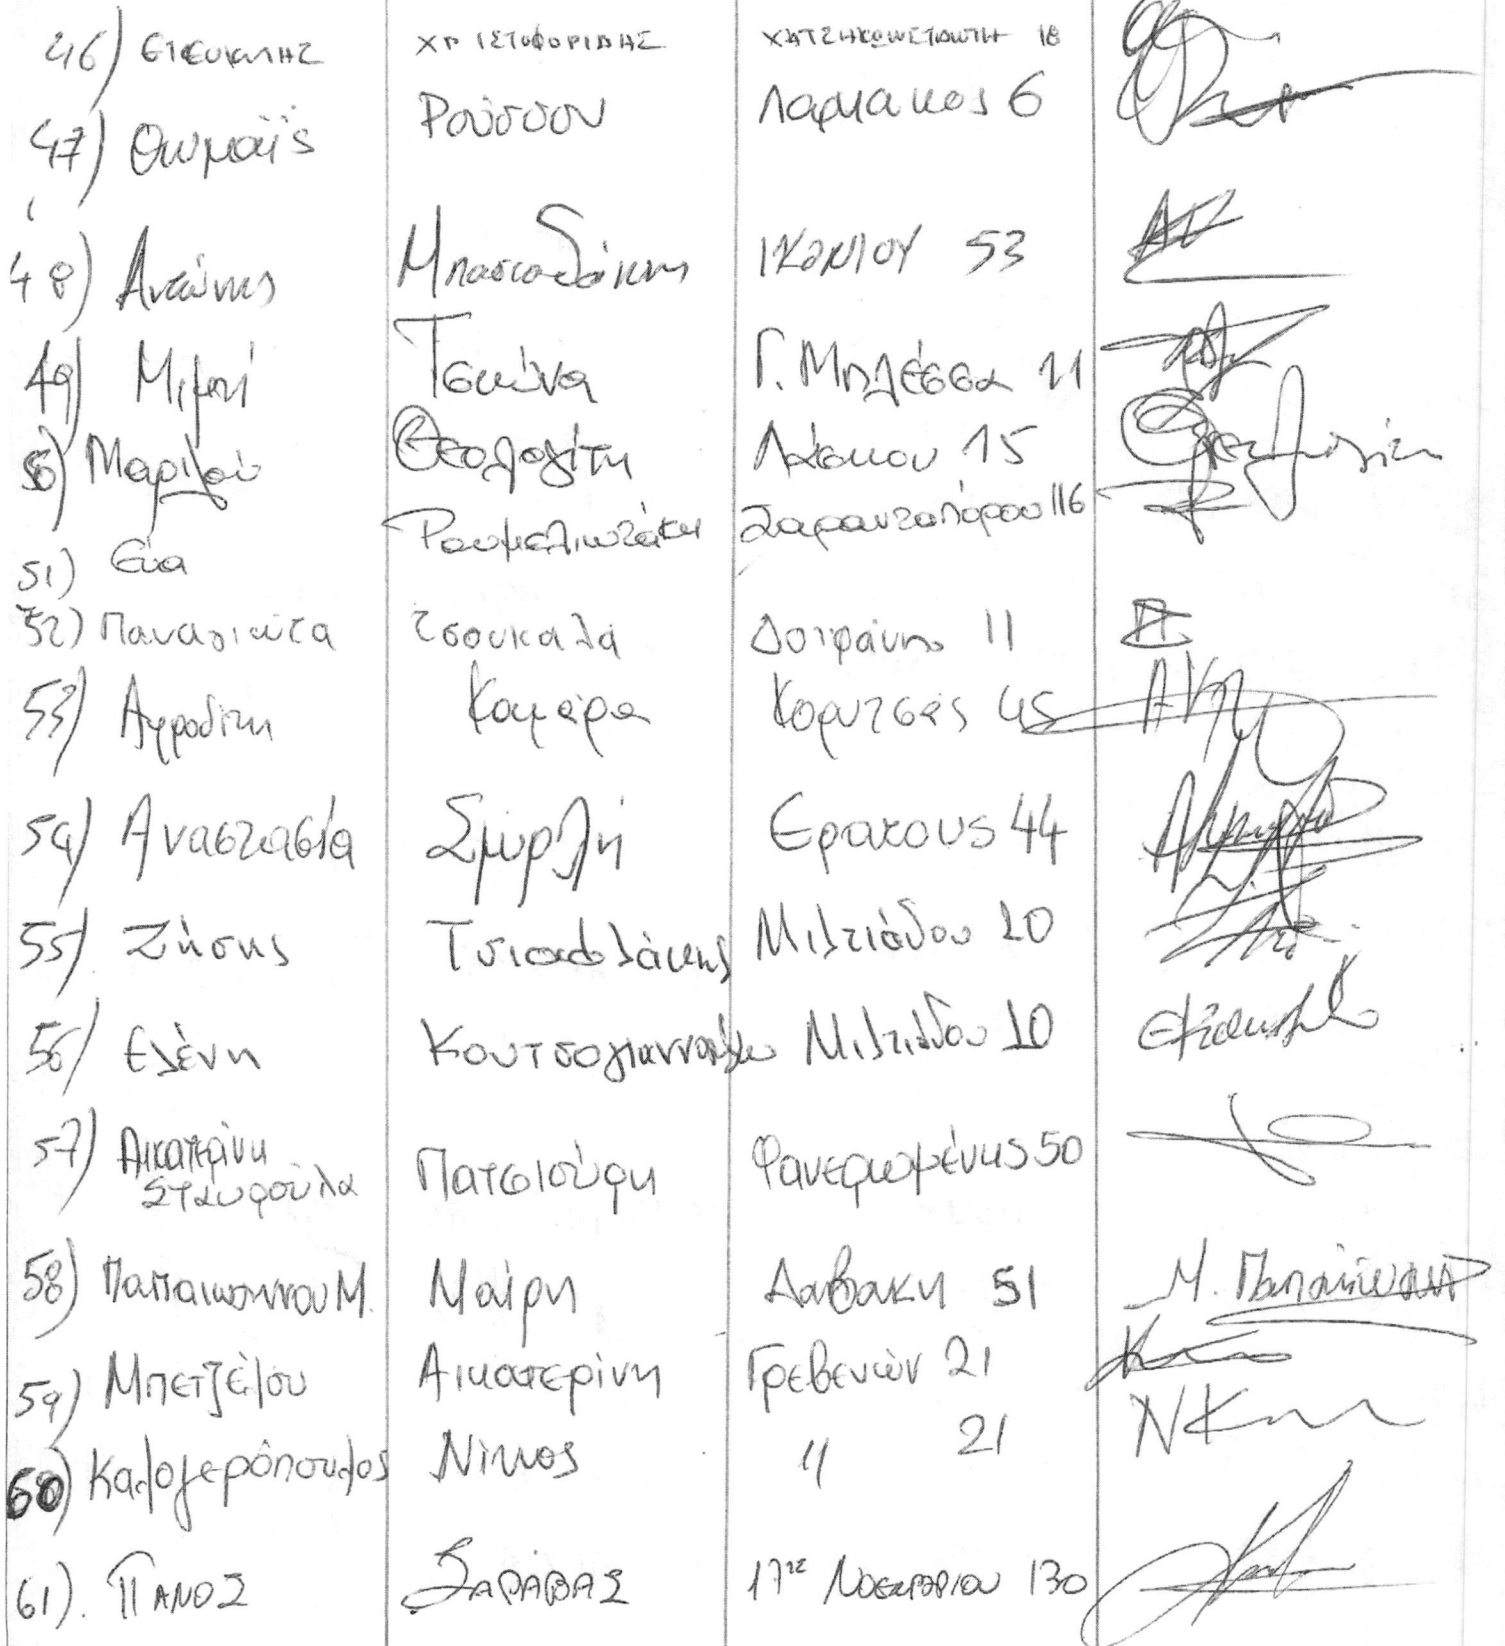 46) ΕΤΕΟΚΛΗΣ ΧΡΙΣΤΟΦΟΡΙΔΗΣ ΧΑΤΖΗΚΩΝΣΤΑΝΤΗ 18
47) Θωμαϊς Ρούσσου Λαρμακος 6
48) Αντώνης Μπασιαδάκης ΙΚΟΝΙΟΥ 53
49) Μιμή Τσκώνα Γ. Μπλέσσα 11
50) Μαριλού Θεολογίτη Λάσκου 15
51) Εύα Ρουμελιωτάκη Σαρανταπόρου 116
52) Παναγιώτα τσουκαλά Δοϊράνης 11
53) Αφροδίτη Καμάρα Κορυτσάς 45
54) Αναστασία Σμυρλή Θρακους 44
55) Ζήσης Μιλτιάδου 20
56) Ελένη Μιλτιάδου 10
57) Αικατερίνη Πατσιούρη Φανερωμένης 50
Σταυρούλα
58) Παπαιωαννου Μ. Μαίρη Δαβακη 51 Μ. Παπαϊωαννου
59) Μπετζέλου Αικατερίνη Γρεβενών 21
60) Καλογερόπουλος Νίκος " 21 ΝΚ
61). ΠΑΝΟΣ ΣΑΡΑΒΑΣ 17ης Νοεμβριου 130